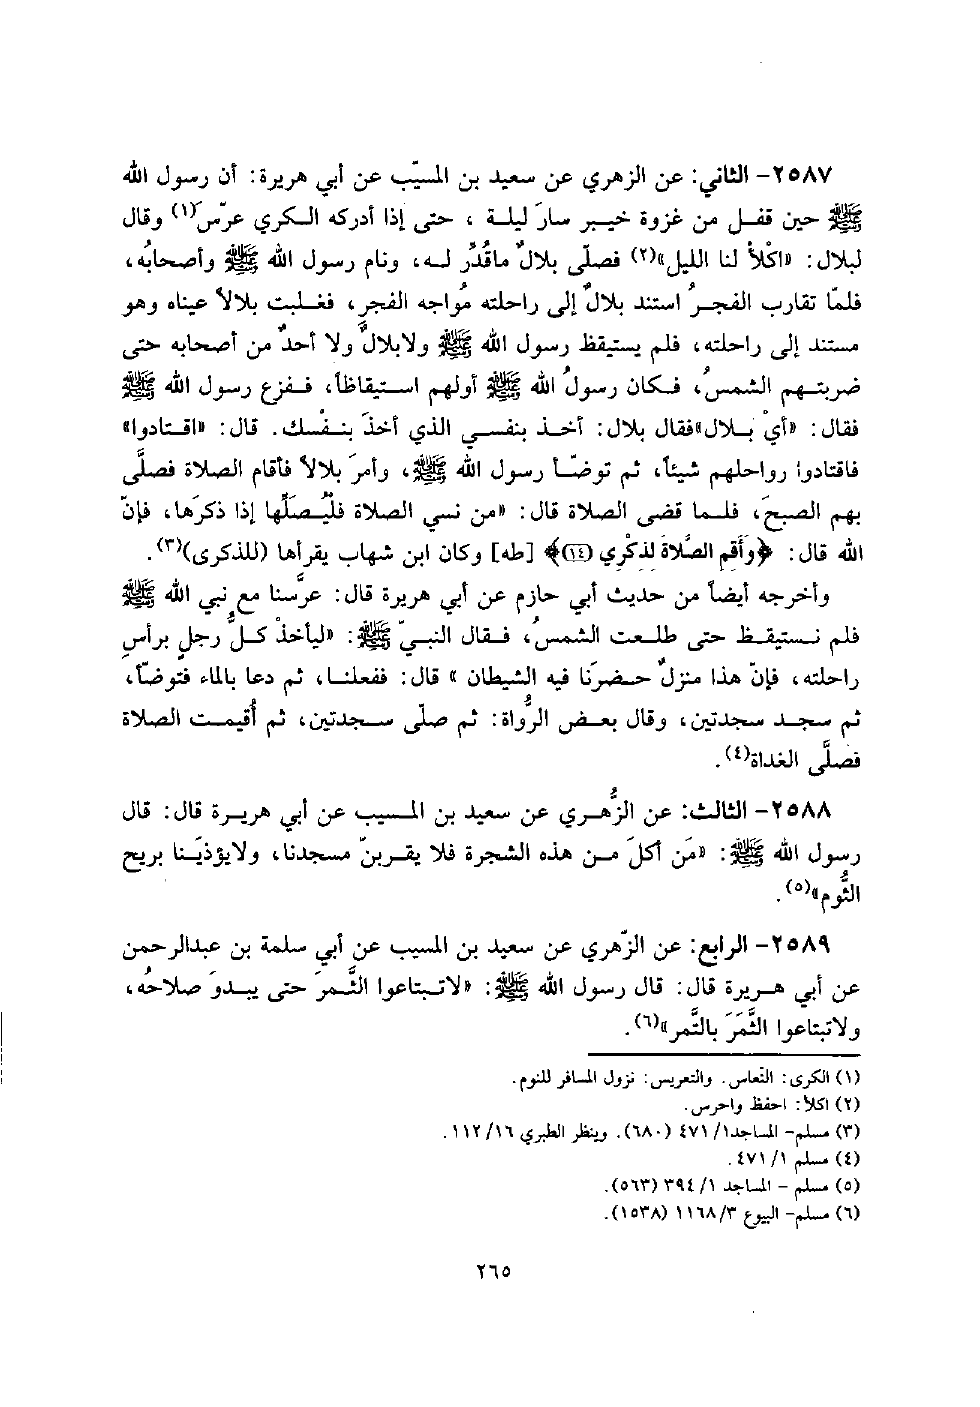 ٢٥٨٧- الثاني: عن الزهري عن سعيد بن المسيّب عن أبي هريرة: أن رسول الله
ﷺ حين قفل من غزوة خيبر سارَ ليلة ، حتى إذا أدركه الكري عرّس(١) وقال
لبلال: «اكْلأْ لنا الليل»(٢) فصلّى بلالٌ ماقُدِّر له، ونام رسول الله ﷺ وأصحابُه،
فلمّا تقارب الفجرُ استند بلالٌ إلى راحلته مُواجه الفجر، فغلبت بلالاً عيناه وهو
مستند إلى راحلته، فلم يستيقظ رسول الله ﷺ ولابلالٌ ولا أحدٌ من أصحابه حتى
ضربتهم الشمسُ، فكان رسولُ الله ﷺ أولهم استيقاظاً، ففزع رسول الله ﷺ
فقال: «أيْ بلال»فقال بلال: أخذ بنفسي الذي أخذَ بنفْسك. قال: «اقتادوا»
فاقتادوا رواحلهم شيئاً، ثم توضّأ رسول الله ﷺ، وأمرَ بلالاً فأقام الصلاة فصلَّى
بهم الصبحَ، فلما قضى الصلاة قال: «من نسي الصلاة فلْيُصلِّها إذا ذكرَها، فإنّ
الله قال: ﴿وأَقم الصَّلاةَ لذكْرِي (١٤)﴾ [طه] وكان ابن شهاب يقرأها (للذكرى)(٣).
وأخرجه أيضاً من حديث أبي حازم عن أبي هريرة قال: عرَّسنا مع نبي الله ﷺ
فلم نستيقظ حتى طلعت الشمسُ، فقال النبيّ ﷺ: «ليأخذْ كلُّ رجلٍ برأسِ
راحلته، فإنّ هذا منزلٌ حضرَنا فيه الشيطان » قال: ففعلنا، ثم دعا بالماء فتوضّأ،
ثم سجد سجدتين، وقال بعض الرُّواة: ثم صلّى سجدتين، ثم أُقيمت الصلاة
فصلَّى الغداة(٤).
٢٥٨٨- الثالث: عن الزُّهري عن سعيد بن المسيب عن أبي هريرة قال: قال
رسول الله ﷺ: «مَن أكلَ من هذه الشجرة فلا يقربنّ مسجدنا، ولايؤذيَنّا بريح
الثُّوم»(٥).
٢٥٨٩- الرابع: عن الزّهري عن سعيد بن المسيب عن أبي سلمة بن عبدالرحمن
عن أبي هريرة قال: قال رسول الله ﷺ: «لاتبتاعوا الثَّمرَ حتى يبدوَ صلاحُه،
ولاتبتاعوا الثَّمَرَ بالتَّمر»(٦).
(١) الكرى: النّعاس. والتعريس: نزول المسافر للنوم.
(٢) اكلأ: احفظ واحرس.
(٣) مسلم- المساجد١/ ٤٧١ (٦٨٠). وينظر الطبري ١٦/ ١١٢.
(٤) مسلم ١/ ٤٧١.
(٥) مسلم - المساجد ١/ ٣٩٤ (٥٦٣).
(٦) مسلم- البيوع ٣/ ١١٦٨ (١٥٣٨).
٢٦٥